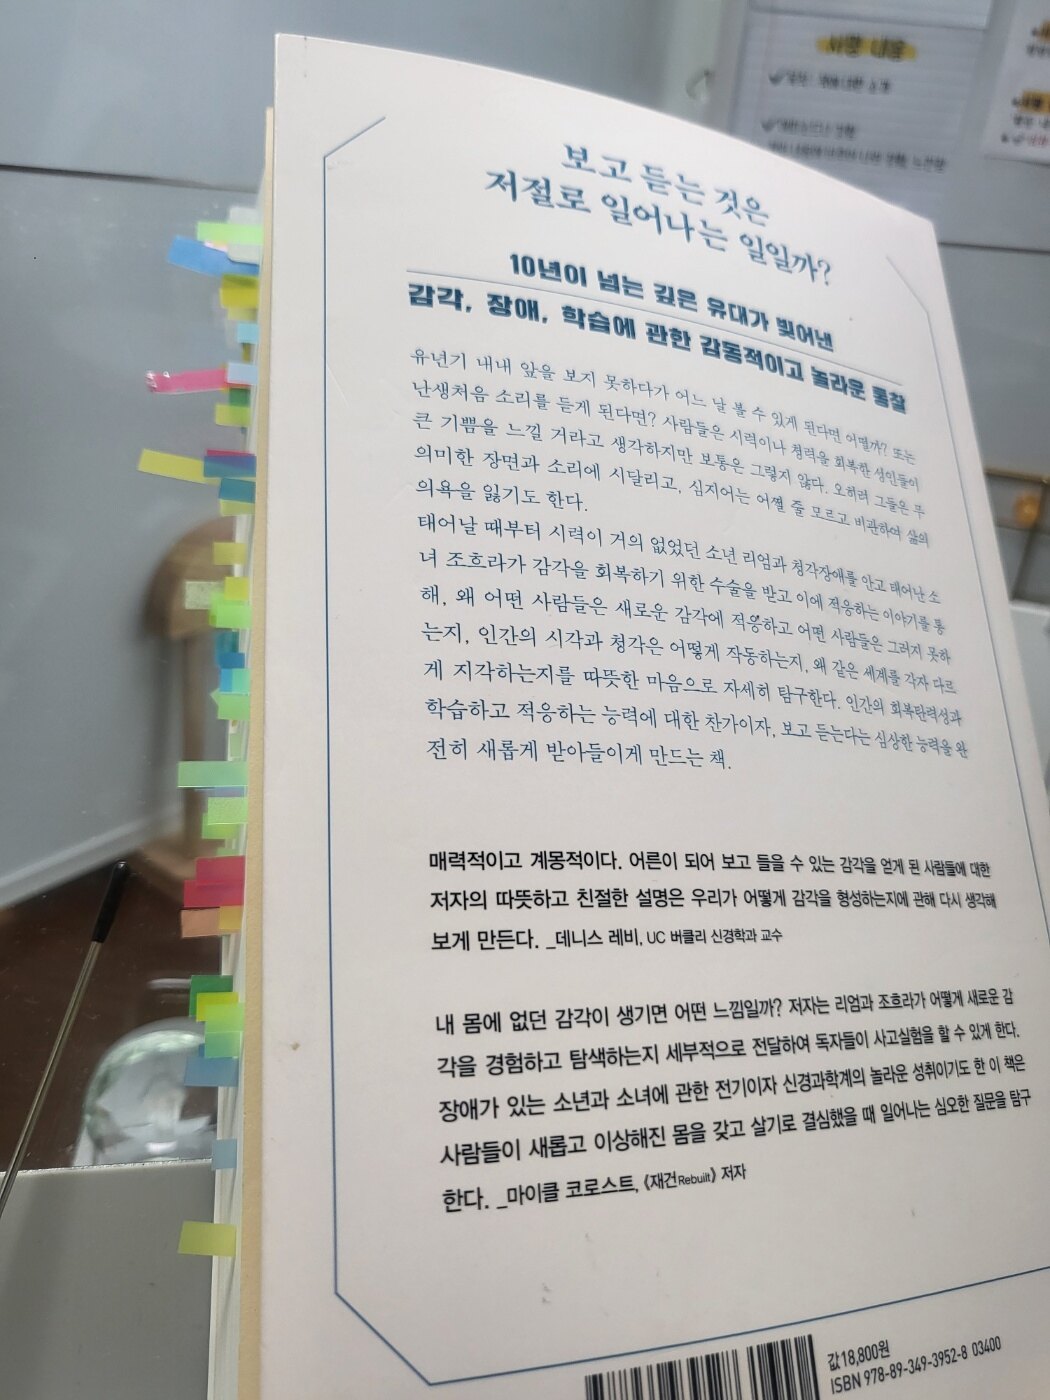 사항 내용
보고 듣는 것은
저절로 일어나는 일일까?
10년이 넘는 깊은 유대가 빚어낸
감각, 장애, 학습에 관한 감동적이고 놀라운 통찰
유년기 내내 앞을 보지 못하다가 어느 날 볼 수 있게 된다면 어떨까? 또는
난생처음 소리를 듣게 된다면? 사람들은 시력이나 청력을 회복한 성인들이
큰 기쁨을 느낄 거라고 생각하지만 보통은 그렇지 않다. 오히려 그들은 무
의미한 장면과 소리에 시달리고, 심지어는 어쩔 줄 모르고 비관하여 삶의
의욕을 잃기도 한다.
태어날 때부터 시력이 거의 없었던 소년 리엄과 청각장애를 안고 태어난 소
녀 조흐라가 감각을 회복하기 위한 수술을 받고 이에 적응하는 이야기를 통
해, 왜 어떤 사람들은 새로운 감각에 적응하고 어떤 사람들은 그러지 못하
는지, 인간의 시각과 청각은 어떻게 작동하는지, 왜 같은 세계를 각자 다르
게 지각하는지를 따뜻한 마음으로 자세히 탐구한다. 인간의 회복탄력성과
학습하고 적응하는 능력에 대한 찬가이자, 보고 듣는다는 심상한 능력을 완
전히 새롭게 받아들이게 만드는 책.
매력적이고 계몽적이다. 어른이 되어 보고 들을 수 있는 감각을 얻게 된 사람들에 대한
저자의 따뜻하고 친절한 설명은 우리가 어떻게 감각을 형성하는지에 관해 다시 생각해
보게 만든다. _데니스 레비, UC 버클리 신경학과 교수
내 몸에 없던 감각이 생기면 어떤 느낌일까? 저자는 리엄과 조흐라가 어떻게 새로운 감
각을 경험하고 탐색하는지 세부적으로 전달하여 독자들이 사고실험을 할 수 있게 한다.
장애가 있는 소년과 소녀에 관한 전기이자 신경과학계의 놀라운 성취이기도 한 이 책은
사람들이 새롭고 이상해진 몸을 갖고 살기로 결심했을 때 일어나는 심오한 질문을 탐구
한다. _마이클 코로스트, 《재건Rebuilt》 저자
값18,800원
ISBN 978-89-349-3952-8 03400